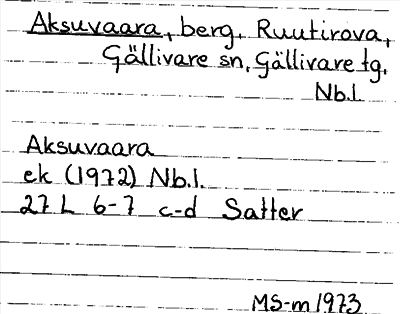 Aksuvaara, berg, Ruutirova,
Gällivare sn, Gällivare tg,
Nb.l.
Aksuvaara
ek (1972) Nb.l.
27 L 6-7 c-d Satter
MS-m 1973